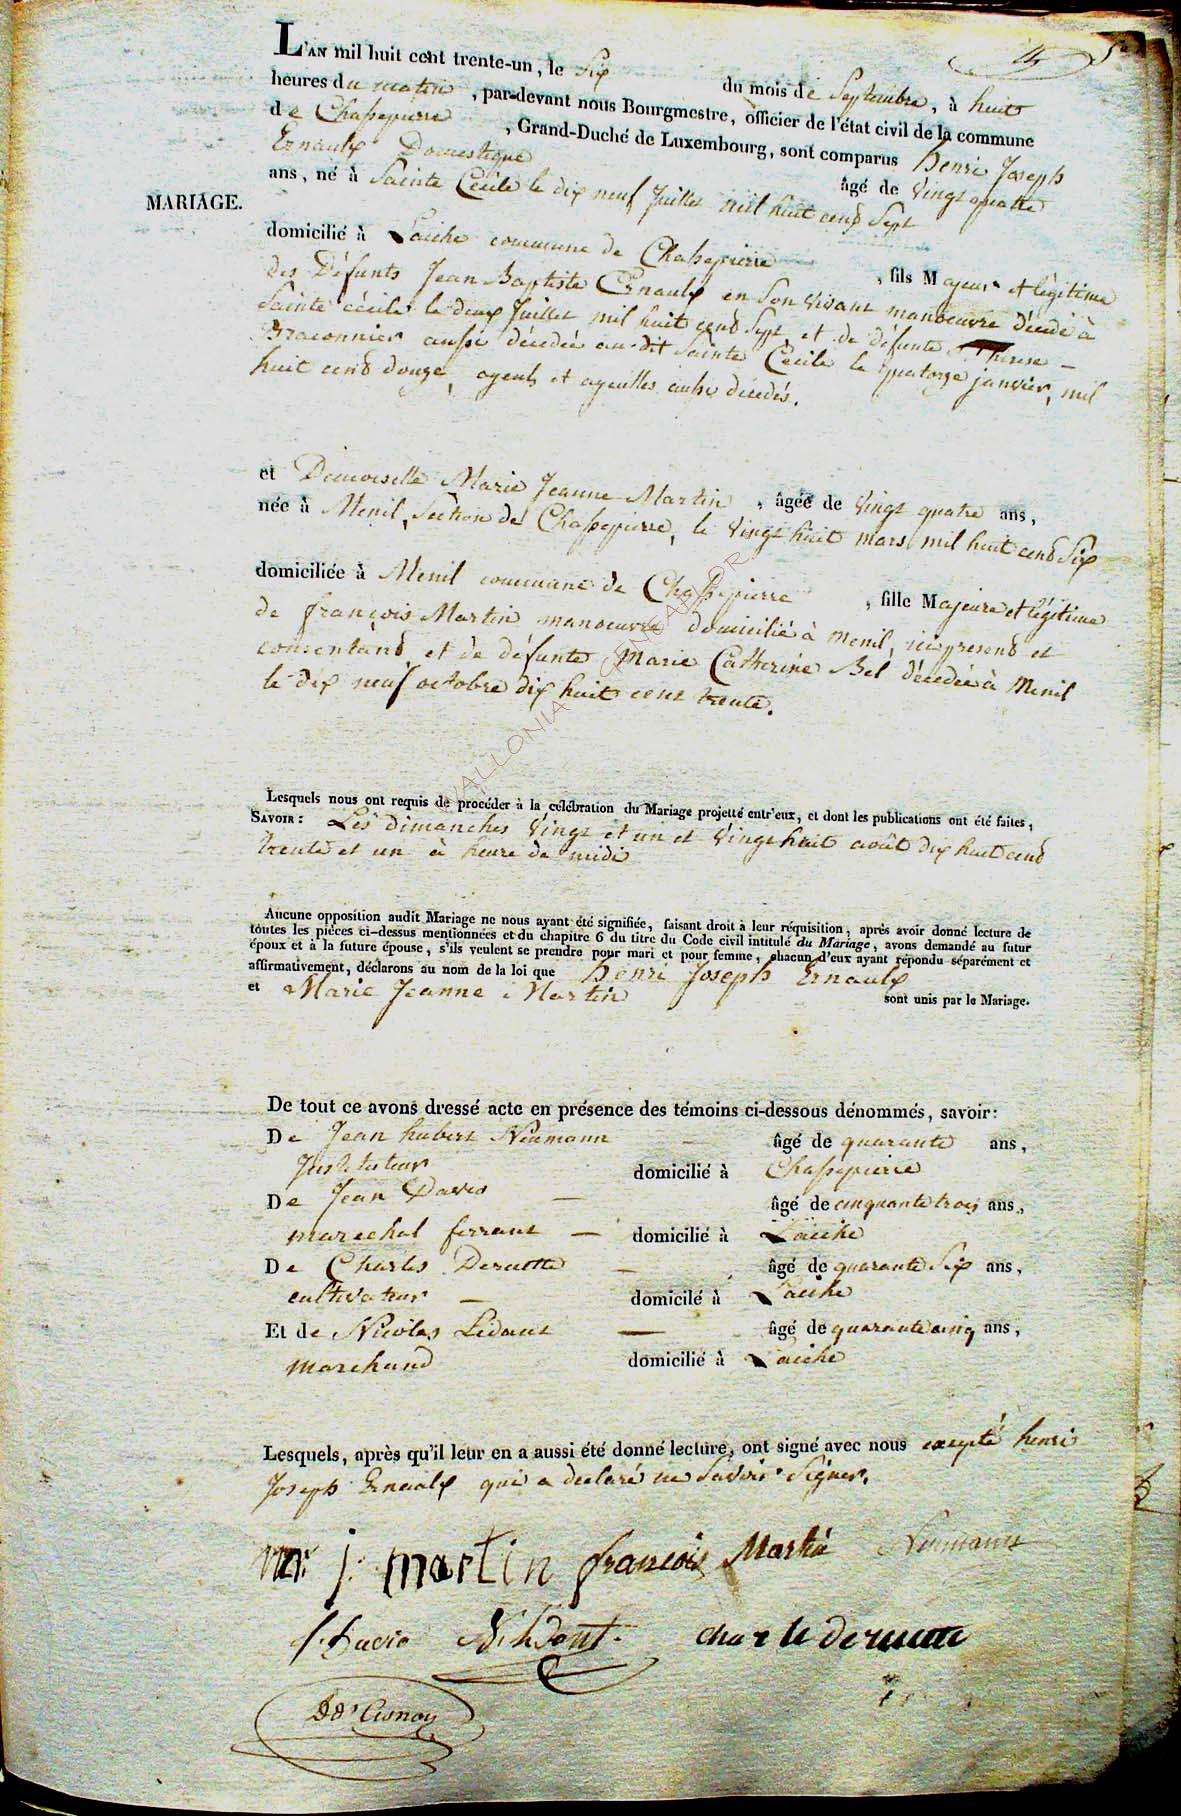 L'AN mil huit cent trente-un, le Six du mois de Septembre, à huit
heures du matin, par-devant nous Bourgmestre, officier de l'état civil de la commune
de Chassepierre, Grand-Duché de Luxembourg, sont comparus Henri Joseph
Ernaulx Domestique âgé de Vingt quatre
ans, né à Sainte Cécile le dix neuf Juillet mil huit cend Sept
MARIAGE.
domicilié à Laiche commune de Chassepierre, fils Majeur et légitime
des Défunts Jean Baptiste Ernaulx en Son vivant manoeuvre décédé à
Sainte cécile le deux Juillet mil huit cend Sept, et de défunte Therese
Braconnier aussi décédée au dit Sainte Cécile le quatorze janvier, mil
huit cend douze, ayeuls et ayeulles aussi décédés.
et Demoiselle Marie Jeanne Martin, âgée de Vingt quatre ans,
née à Menil, Section de Chassepierre, le Vingt huit mars mil huit cend Six
domiciliée à Menil commune de Chassepierre, fille Majeure et légitime
de françois Martin manoeuvre domicilié à Menil, ici present et
consentand, et de défunte Marie Catherine Bel décédée à Menil
le dix neuf octobre dix huit cent trente.
WALLONIA
Lesquels nous ont requis de procéder à la célébration du Mariage projetté entr'eux, et dont les publications ont été faites,
SAVOIR: Les dimanches Vingt et un et Vingt huit août dix huit cend
trente et un à heure de midi
Aucune opposition audit Mariage ne nous ayant été signifiée, faisant droit à leur réquisition, après avoir donné lecture de
toutes les pièces ci-dessus mentionnées et du chapitre 6 du titre du Code civil intitulé du Mariage, avons demandé au futur
époux et à la future épouse, s'ils veulent se prendre pour mari et pour femme, chacun d'eux ayant répondu séparément et
affirmativement, déclarons au nom de la loi que Henri Joseph Ernaulx
et Marie Jeanne Martin sont unis par le Mariage.
De tout ce avons dressé acte en présence des témoins ci-dessous dénommés, savoir:
De Jean hubert Neumann âgé de quarante ans,
Instituteur domicilié à Chassepierre
De Jean Davio — âgé de cinquante trois ans,
marechal ferrant — domicilié à Laiche
De Charles Derutte — âgé de quarante Six ans,
cultivateur — domicilé à Laiche
Et de Nicolas Lidaut — âgé de quarante cinq ans,
marchand domicilié à Laiche
Lesquels, après qu'il leur en a aussi été donné lecture, ont signé avec nous excepté henri
Joseph Ernaulx qui a declaré ne Savoir Signer.
mr j. martin françois Martin Neumann
charle derutte